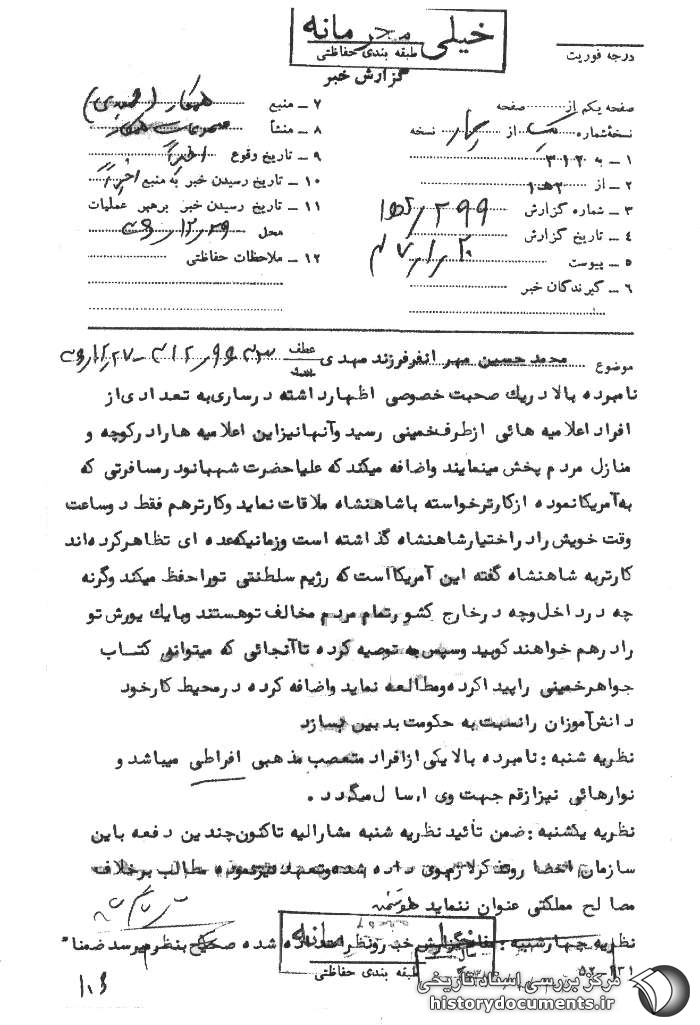 خیلی محرمانه
طبقه بندی حفاظتی
گزارش خبر
درجه فوریت
صفحه یکم از صفحه
نسخه شماره یک از نسخه
۱ ــ به ۳۱۲
۲ ــ از ۱ه۲
۳ ــ شماره گزارش
۴ ــ تاریخ گزارش
۵ ــ پیوست
۶ ــ گیرندگان خبر
۷ ــ منبع همکار
۸ ــ منشأ همکار
۹ ــ تاریخ وقوع اخیراً
۱۰ ــ تاریخ رسیدن خبر به منبع اخیراً
۱۱ ــ تاریخ رسیدن خبر برهبر عملیات
محل
۱۲ ــ ملاحظات حفاظتی
موضوع محمد حسین مهر انفر فرزند مهدی عطف
نامبرده بالا در یك صحبت خصوصی اظهار داشته در ساری به تعدادی از
افراد اعلامیه هائی از طرف خمینی رسید و آنها نیز این اعلامیه ها را در کوچه و
منازل مردم پخش مینمایند و اضافه میکند که علیا حضرت شهبانو در مسافرتی که
به آمریکا نموده از کارتر خواسته با شاهنشاه ملاقات نماید و کارتر هم فقط دو ساعت
وقت خویش را در اختیار شاهنشاه گذاشته است و زمانیکه عده ای تظاهر کرده اند
کارتر به شاهنشاه گفته این آمریکا است که رژیم سلطنتی تو را حفظ میکند وگرنه
چه در داخل و چه در خارج کشور تمام مردم مخالف تو هستند و با یك یورش تو
را در هم خواهند کوبید و سپس به توصیه کرده تا آنجائی که میتوانی کتساب
جواهر خمینی را پیدا کرده و مطالعه نماید و اضافه کرده در محیط کار خود
دانش آموزان را نسبت به حکومت بدبین بسازد
نظریه شنبه : نامبرده بالا یکی از افراد متعصب مذهبی افراطی میباشد و
نوارهائی نیز از قم جهت وی ارسال میگردد .
نظریه یکشنبه : ضمن تأئید نظریه شنبه مشارالیه تاکنون چندین دفعه باین
سازمان احضار و تذکر لازم بوی داده شده و تعهد نیز نموده مطالب برخلاف
مصالح مملکتی عنوان ننماید
نظریه چهارشنبه : مفاد گزارش خبر و نظرات داده شده صحیح بنظر میرسد ضمنا"
طبقه بندی حفاظتی
مرکز بررسی اسناد تاریخی
historydocuments.ir